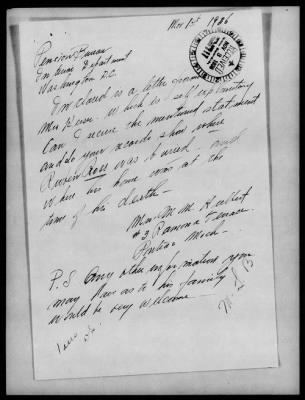 Nov 1st 1926
Pension Bureau
Interior Department
Washington D.C.
Inclosed is a letter from
Mrs. which is self explanatory
Can I secure the mentioned statement
and do your records show where
Reuben Ross was buried and
where his home was at the
time of his death—
Mrs. M. M. Hulbert
#3 Ramona Terrace
Pontiac Mich.
P.S. Any other information you
may have as to his family
would be very welcome